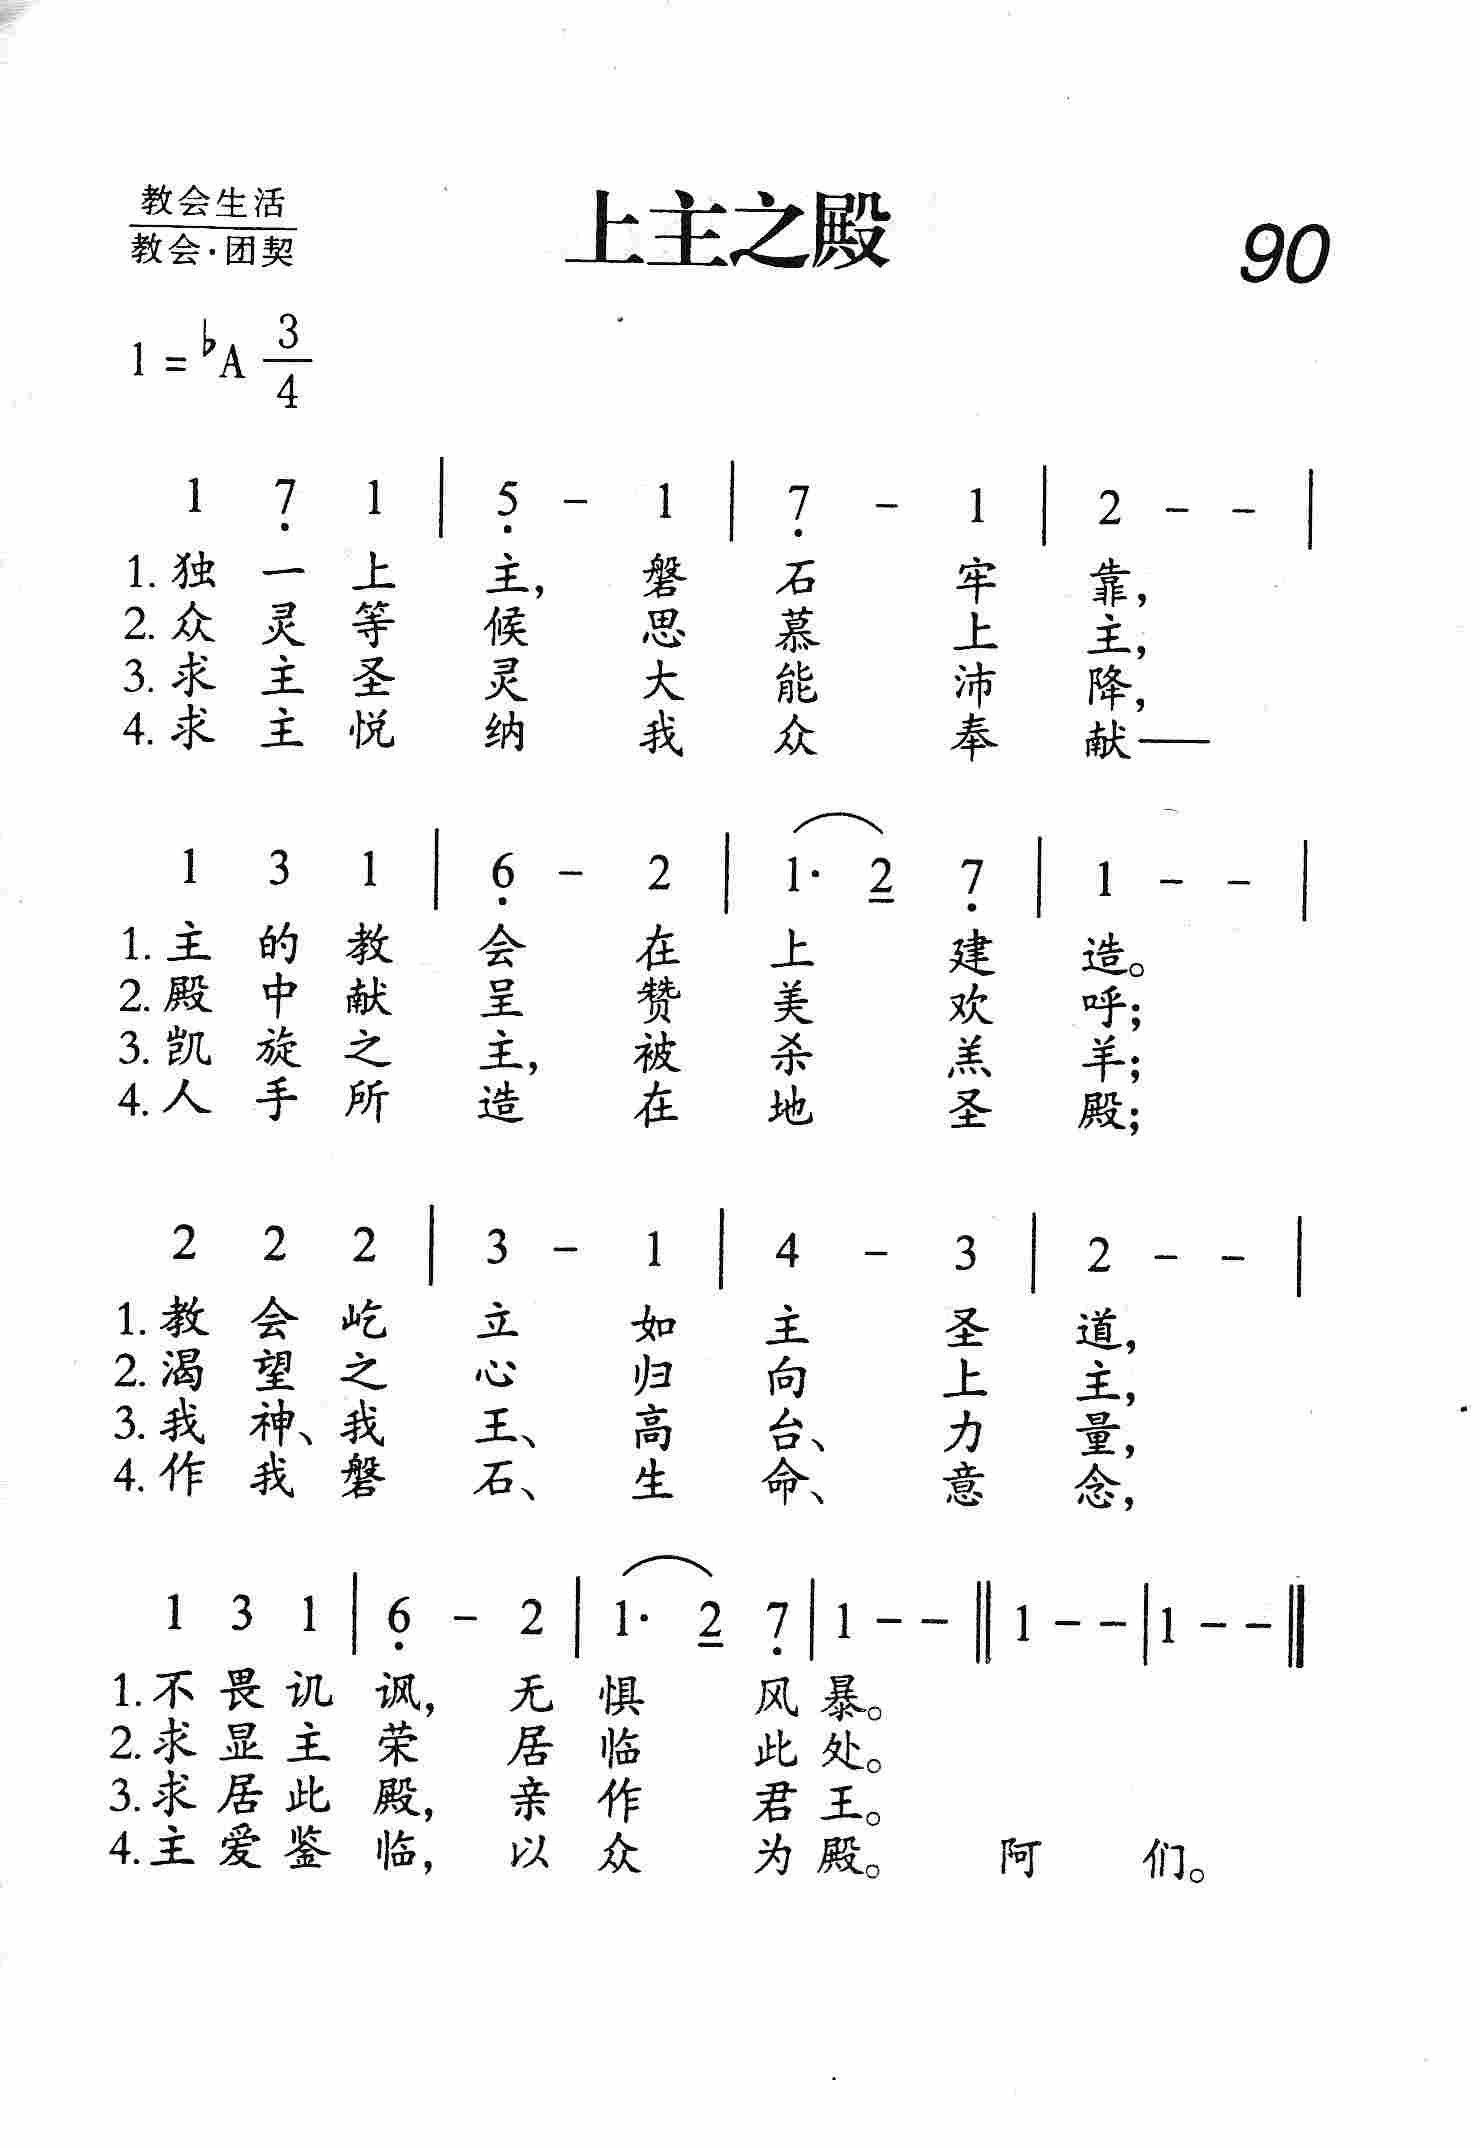 教会生活
教会·团契
上主之殿
90
1=♭A 3/4
1 7̣ 1 | 5̣ - 1 | 7̣ - 1 | 2 - - |
1.独一上主，磐石牢靠，
2.众灵等候思慕上主，
3.求主圣灵大能沛降，
4.求主悦纳我众奉献——
1 3 1 | 6̣ - 2 | 1· 2 7̣ | 1 - - |
1.主的教会在上建造。
2.殿中献呈赞美欢呼；
3.凯旋之主，被杀羔羊；
4.人手所造在地圣殿；
2 2 2 | 3 - 1 | 4 - 3 | 2 - - |
1.教会屹立如主圣道，
2.渴望之心归向上主，
3.我神、我王、高台、力量，
4.作我磐石、生命、意念，
1 3 1 | 6̣ - 2 | 1· 2 7̣ | 1 - - ‖ 1 - - | 1 - - ‖
1.不畏讥讽，无惧风暴。
2.求显主荣居临此处。
3.求居此殿，亲作君王。
4.主爱鉴临，以众为殿。阿们。